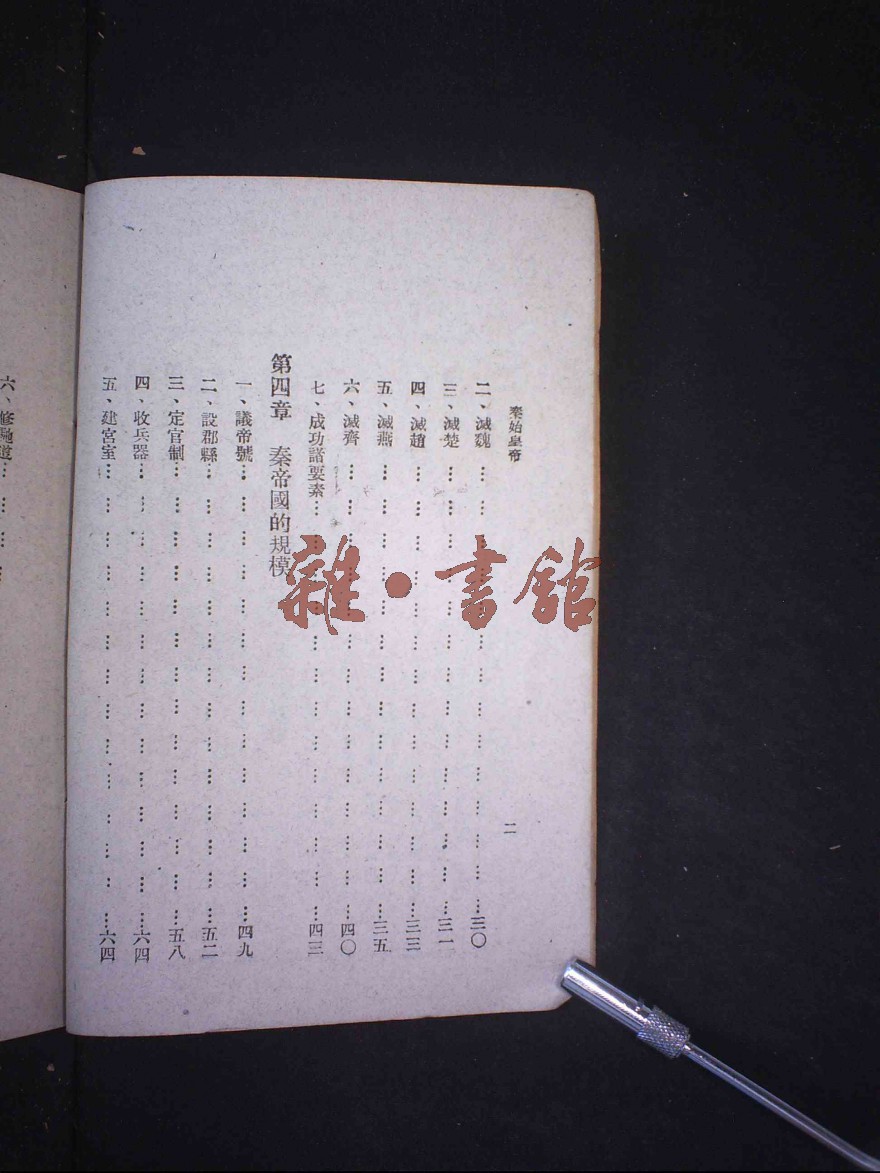 秦始皇帝
二
二、滅魏………………………三〇
三、滅楚………………………三一
四、滅趙………………………三三
五、滅燕………………………三五
六、滅齊………………………四〇
七、成功諸要素………………………四三
第四章　秦帝國的規模
一、議帝號………………………四九
二、設郡縣………………………五二
三、定官制………………………五八
四、收兵器………………………六四
五、建宮室………………………六四
六、修馳道………
雜·書館